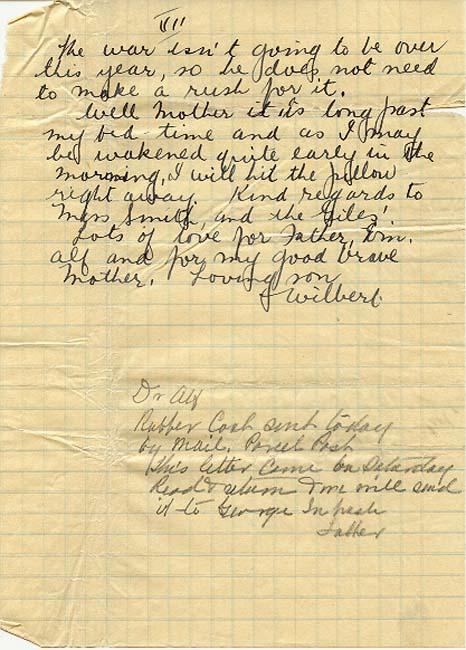 VII
The war isn't going to be over
this year, so he does not need
to make a rush for it.
Well Mother it is long past
my bed-time and as I may
be wakened quite early in the
morning, I will hit the pillow
right away. Kind regards to
Miss Smith, and the Giles'.
Lots of love for Father, Em.
Alf and for my good brave
Mother. Loving son
Wilbert.
Dr Alf
Rubber Coat sent today
by Mail. Parcel Post
this letter came on Saturday
Read & return & we will send
it to George
Father